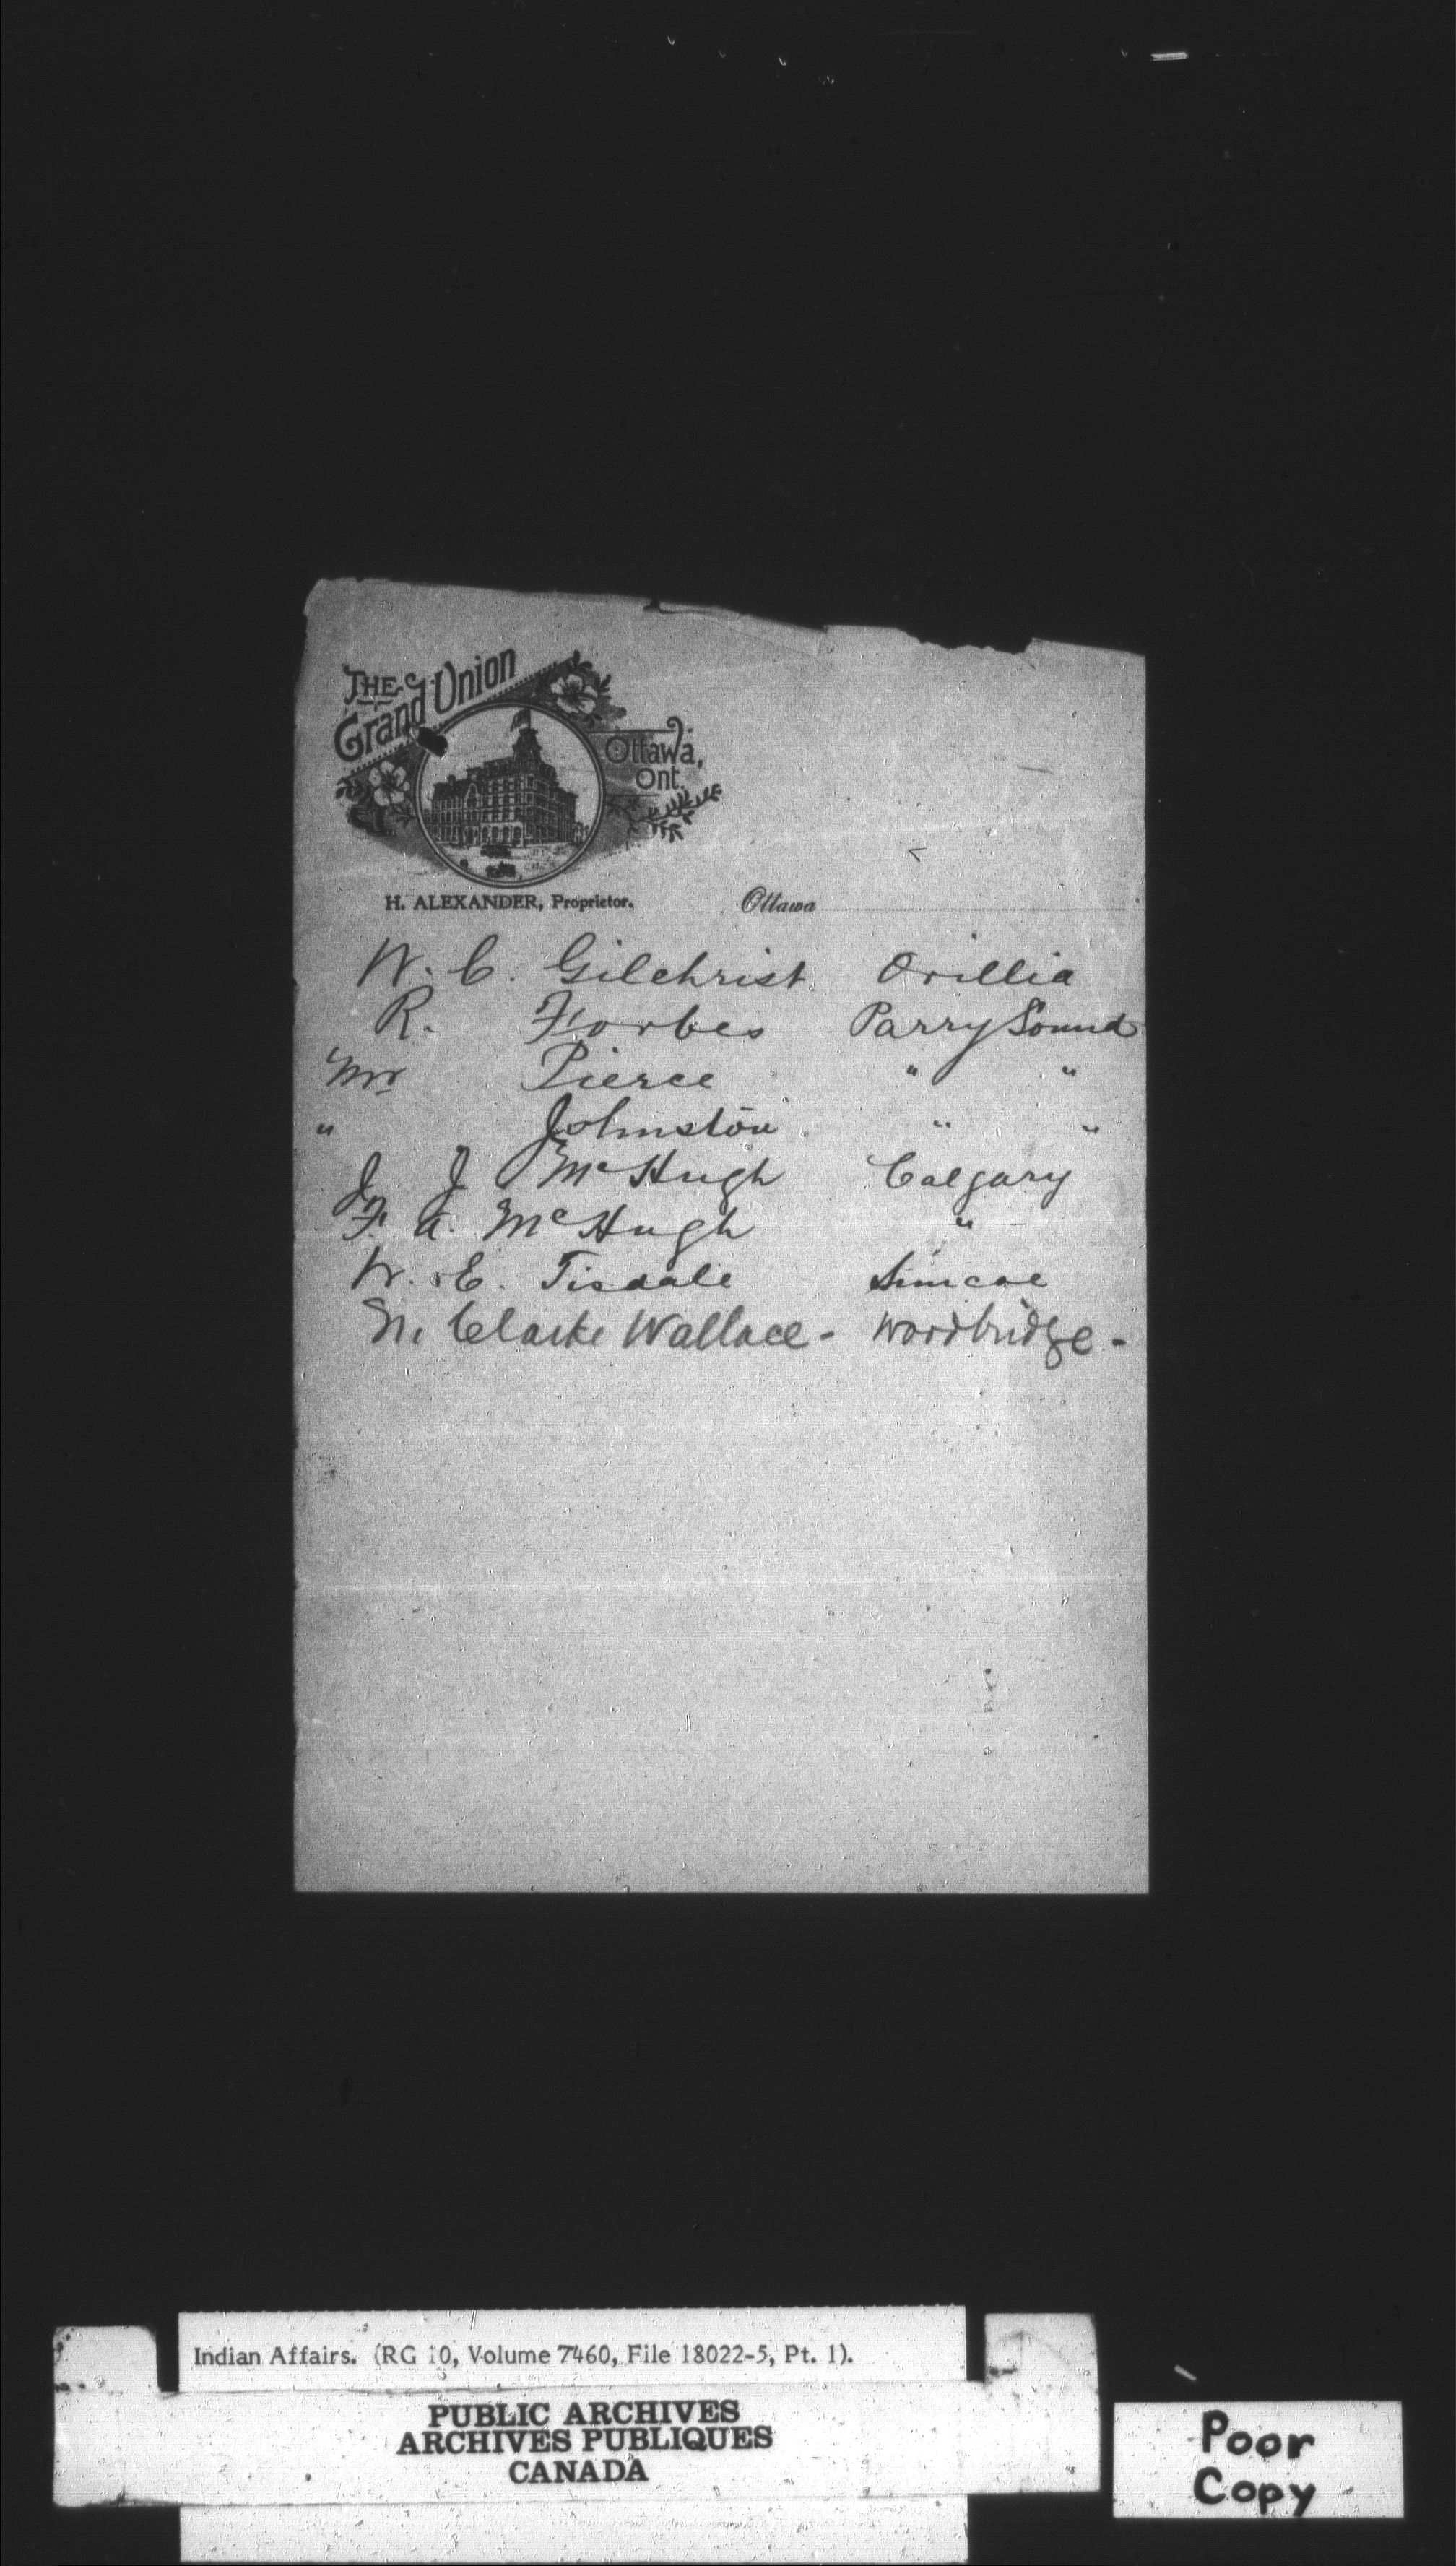 THE
Grand Union
Ottawa,
Ont.
H. ALEXANDER, Proprietor.
Ottawa
W. C. Gilchrist. Orillia
R. Forbes Parry Sound
Mr Pierce " "
" Johnston " "
J J McHugh Calgary
F. A. McHugh "
W. E. Tisdale Simcoe
N. Clarke Wallace - Woodbridge -
Indian Affairs. (RG 10, Volume 7460, File 18022-5, Pt. 1).
PUBLIC ARCHIVES
ARCHIVES PUBLIQUES
CANADA
Poor
Copy